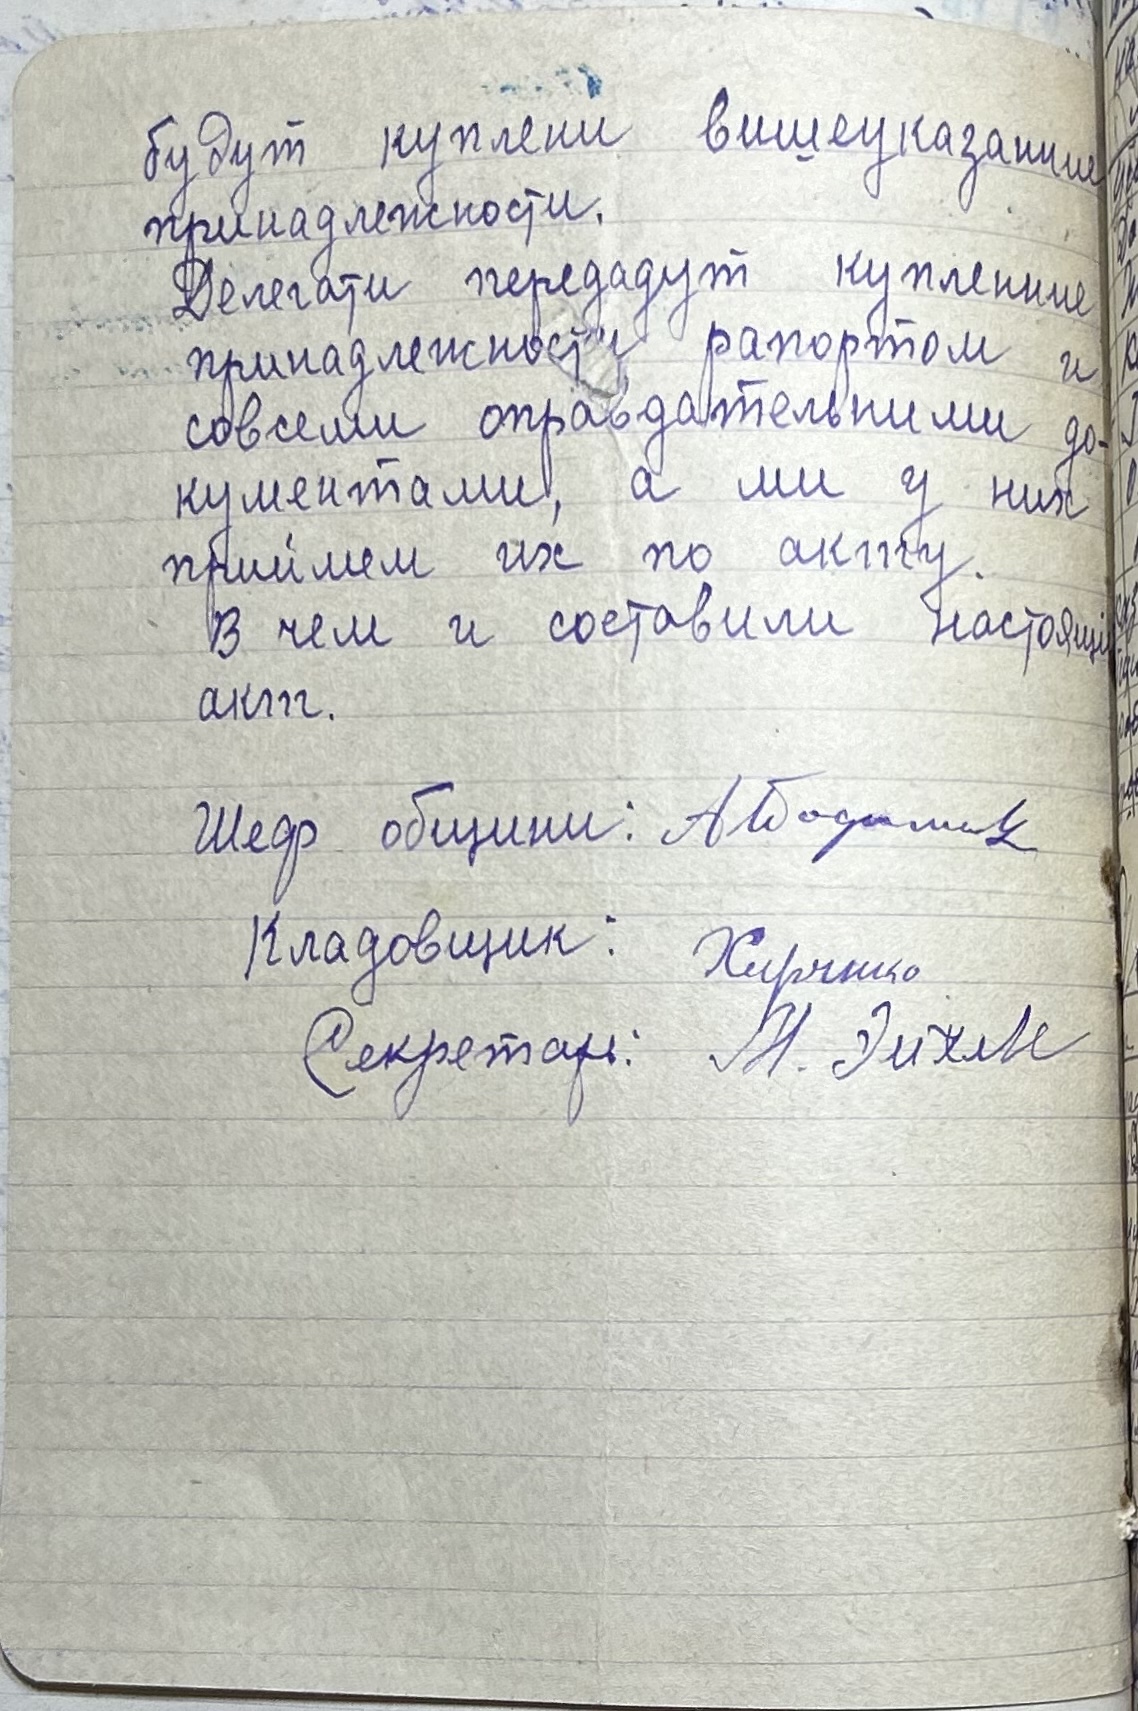 будут куплени вишеуказанние
принадлежности.
Делегати передадут купленние
принадлежности рапортом и
совсеми оправдательними до-
кументами, а ми у них
приймем их по акту.
В чем и составили настоящий
акт.
Шеф общини:
Кладовщик: Харченко
Секретарь: М.